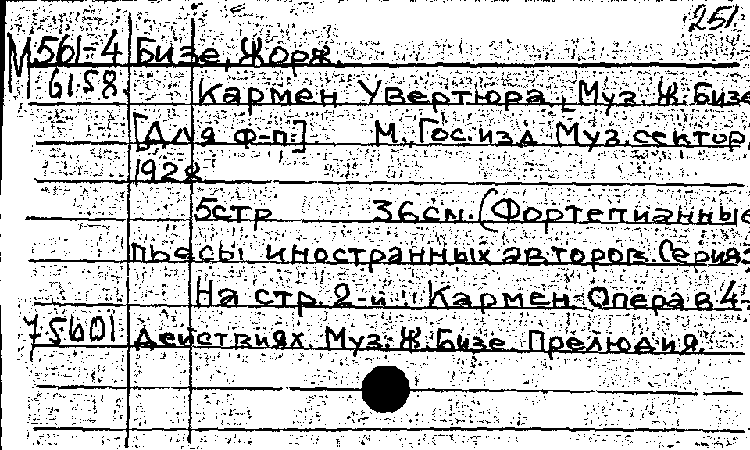 251
М561-4 Бизе, Жорж.
61.58. Кармен Увертюра. Муз. Ж. Бизе
[Для ф-п.]. М., Гос. изд. Муз. сектор,
1928
5стр 36см. (Фортепианные
пьесы иностранных авторов. Серия:
На стр. 2-й: Кармен-Опера в 4-
75601 действиях. Муз. Ж. Бизе. Прелюдия.